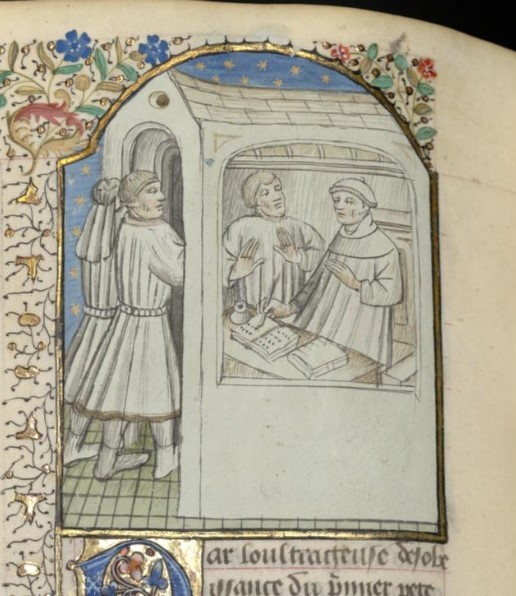 ar loultrageuse desobe
issance du p̄mier pere